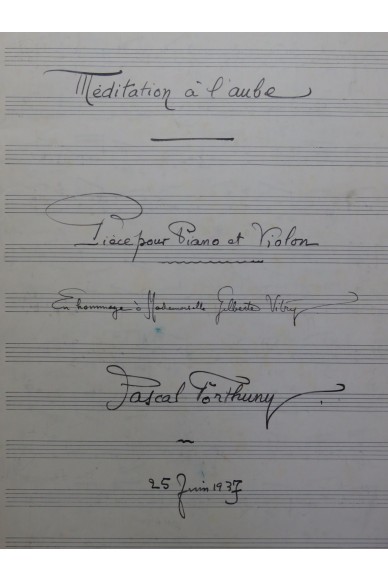 Méditation à l'aube
Pièce pour Piano et Violon
En hommage à Mademoiselle Gilberte Vitry
Pascal Forthuny
25 Juin 1937